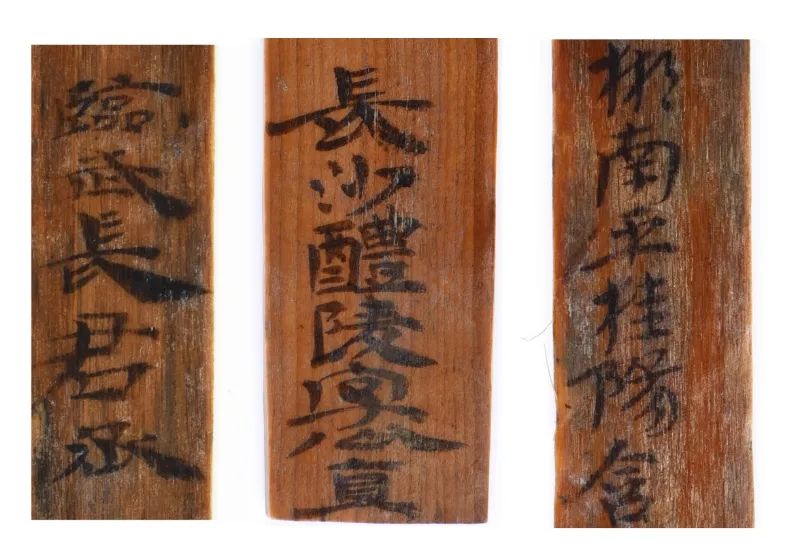 臨武長君丞
長沙醴陵直
郴南平桂陽含